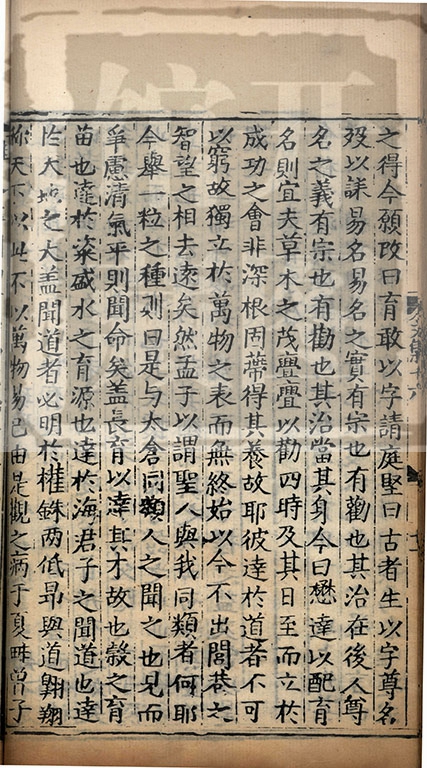 之得今願改曰育敢以字請庭堅曰古者生以字尊名
歿以諡易名易名之實有宗也有勸也其治在後人尊
名之義有宗也有勸也其治當其身今曰懋達以配育
名則宜夫草木之茂亹亹以勸四時及其日至而立於
成功之會非深根固蔕得其養故耶彼達於道者不可
以窮故獨立於萬物之表而無終始以今不出閭巷之
智望之相去遠矣然孟子以謂聖人與我同類者何耶
今舉一粒之種則曰是与太倉同類人之聞之也兄而
爭慮清氣平則聞命矣盖長育以達其才故也穀之育
苗也達於粢盛水之育源也達於海君子之聞道也達
於大地之大盖聞道者必明於權銖两低昂與道翱翔
称天下以此不以萬物易己由是觀之病于夏畦曾子